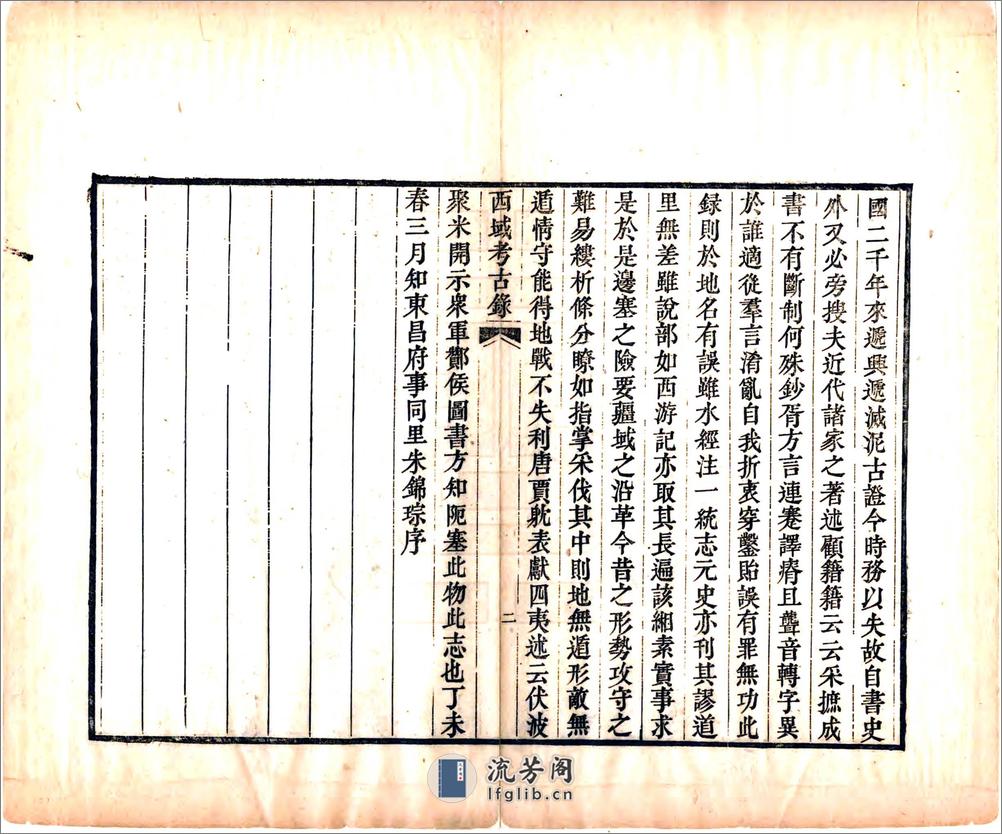 國二千年來遞興遞滅泥古證今時務以失故自書史
外又必旁搜夫近代諸家之著述顧籍籍云云采摭成
書不有斷制何殊鈔胥方言連蹇譯瘠且聾音轉字異
於誰適從羣言淆亂自我折衷穿鑿貽誤有罪無功此
錄則於地名有誤雖水經注一統志元史亦刊其謬道
里無差雖說部如西游記亦取其長遍該緗素實事求
是於是邊塞之險要疆域之沿革今昔之形勢攻守之
難易縷析條分瞭如指掌采伐其中則地無遁形敵無
遁情守能得地戰不失利唐賈躭表獻四夷述云伏波
西域考古錄
二
聚米開示衆軍酇侯圖書方知阨塞此物此志也丁未
春三月知東昌府事同里朱錦琮序
流芳阁
lfglib.cn